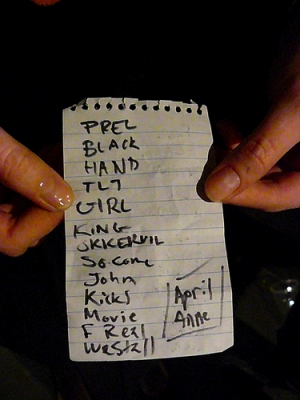 PREL
BLACK
HAND
TLT
GIRL
KING
OKKERVIL
So Come
John
Kicks
Movie
F Real
Westfall
April
Anne